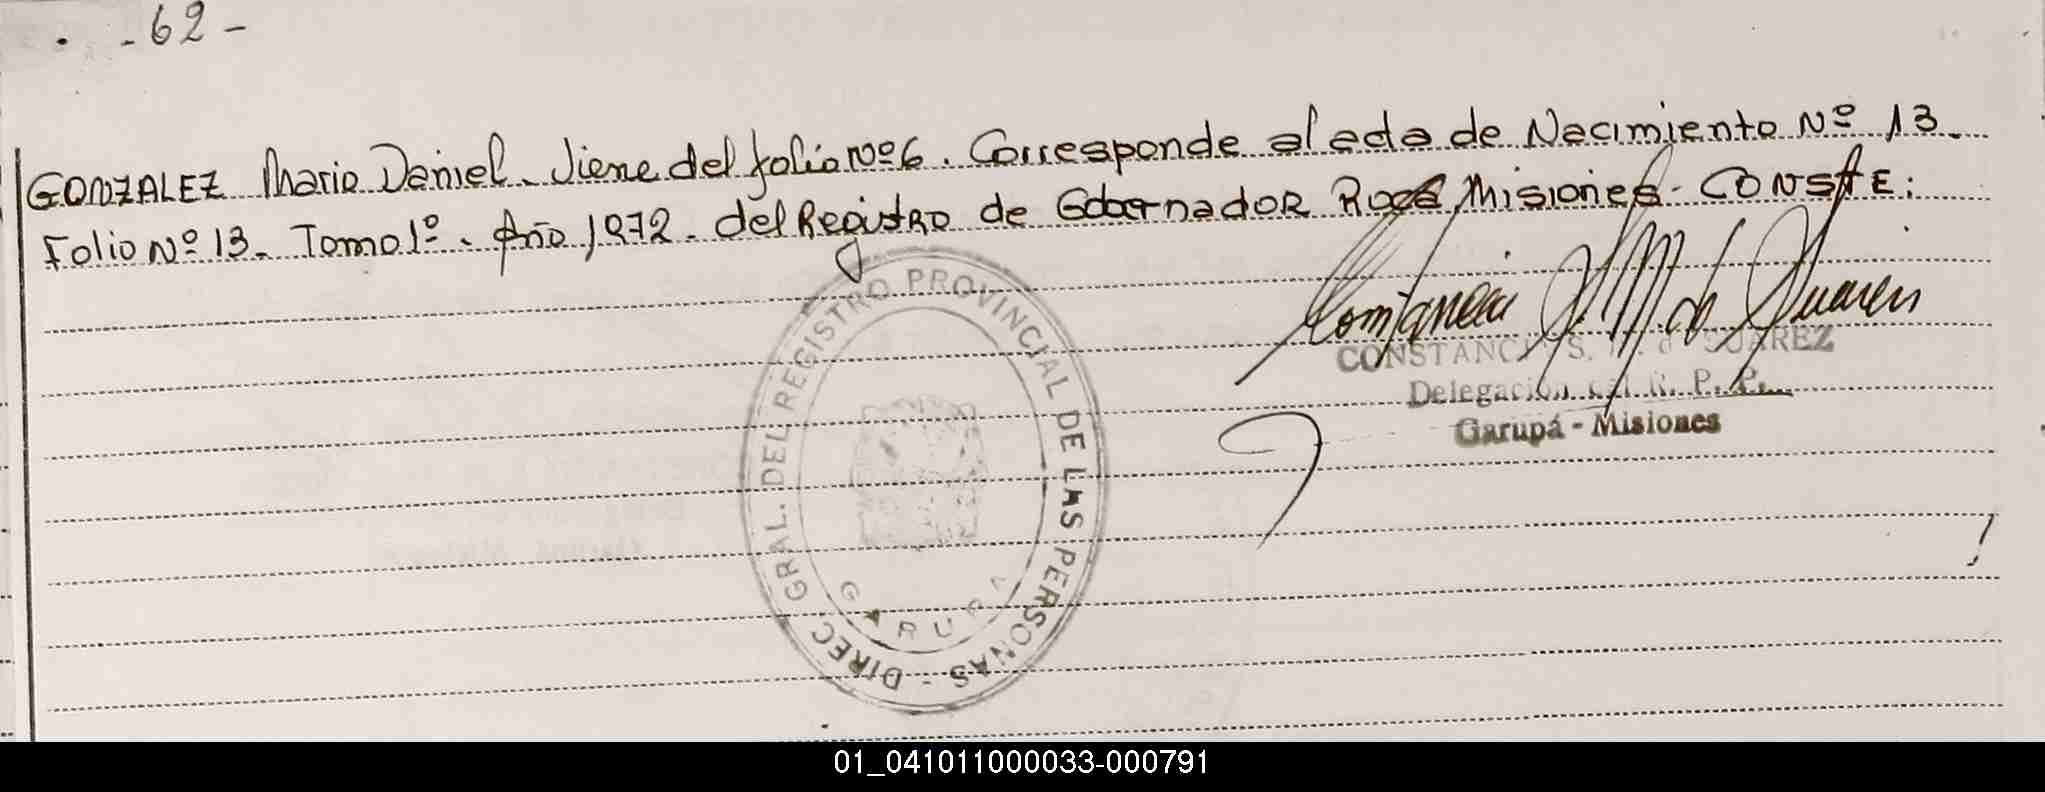 - 62 -
GONZALEZ Mario Daniel. Viene del folio Nº 6. Corresponde al acta de Nacimiento Nº 13.
Folio Nº 13. Tomo 1º. Año 1972. del Registro de Gobernador Roca Misiones. CONSTE:
DIREC. GRAL. DEL REGISTRO PROVINCIAL DE LAS PERSONAS -
GARUPA
Constancia S. M. de Suarez
CONSTANCIA S. M. de SUAREZ
Delegación del R. P. P.
Garupá - Misiones
01_041011000033-000791